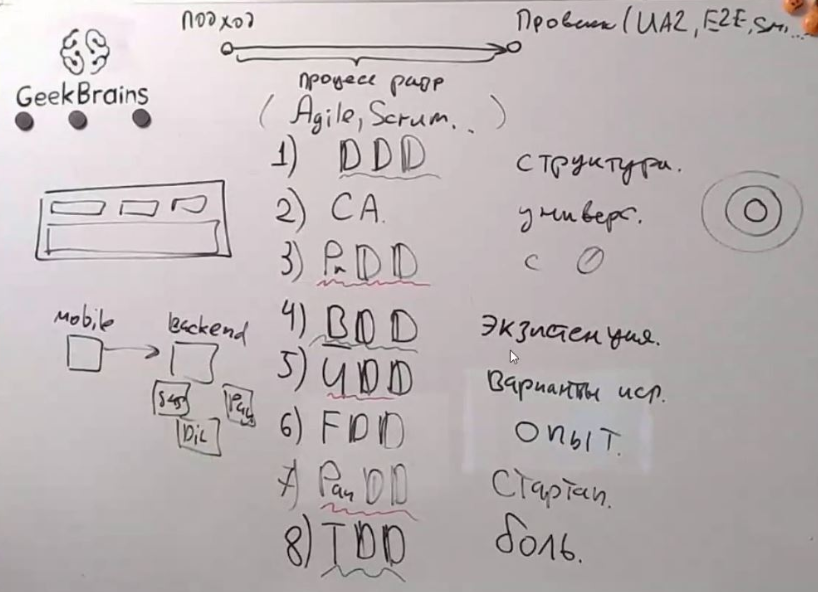 подход
Проблем (UAZ, E2E, Sm, ...
GeekBrains
процесс разр
(Agile, Scrum...)
1) DDD структури.
2) CA. универс.
3) PrDD с 0
4) BDD экзистенция.
5) UDD Варианты исп.
6) FDD опыт.
7) PanDD Стартап.
8) TDD боль.
mobile
backend
Pay
Dic